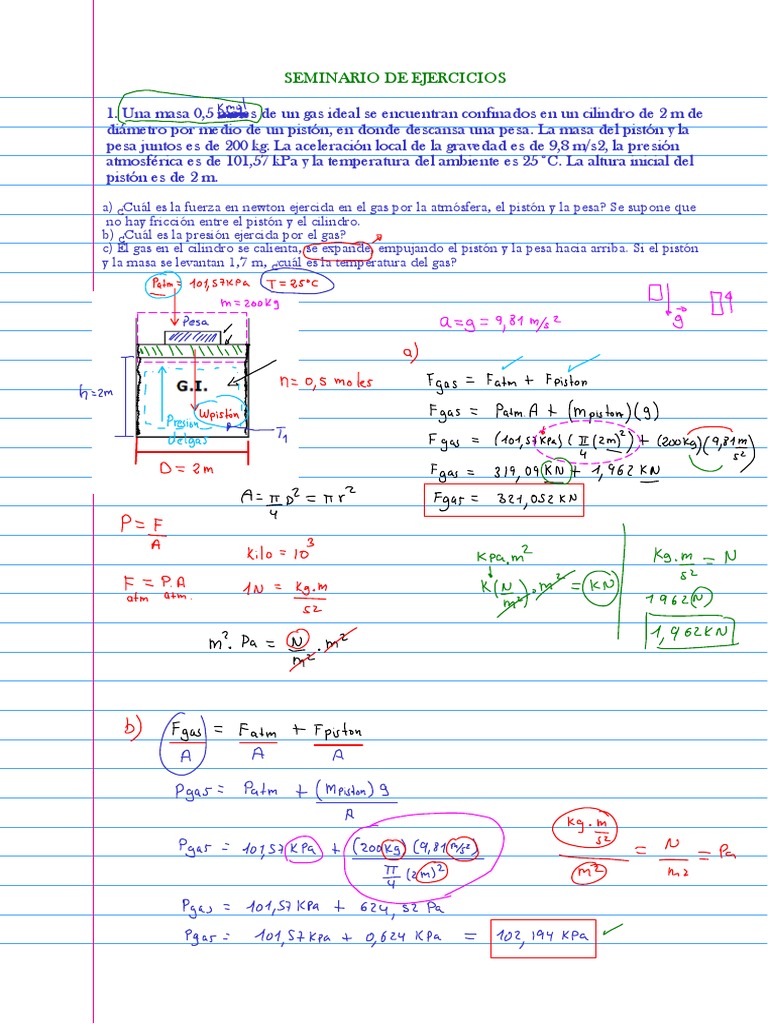 SEMINARIO DE EJERCICIOS
Kmol
1. Una masa 0,5 moles de un gas ideal se encuentran confinados en un cilindro de 2 m de
diámetro por medio de un pistón, en donde descansa una pesa. La masa del pistón y la
pesa juntos es de 200 kg. La aceleración local de la gravedad es de 9,8 m/s2, la presión
atmosférica es de 101,57 kPa y la temperatura del ambiente es 25 °C. La altura inicial del
pistón es de 2 m.
a) ¿Cuál es la fuerza en newton ejercida en el gas por la atmósfera, el pistón y la pesa? Se supone que
no hay fricción entre el pistón y el cilindro.
b) ¿Cuál es la presión ejercida por el gas?
c) El gas en el cilindro se calienta, se expande, empujando el pistón y la pesa hacia arriba. Si el pistón
y la masa se levantan 1,7 m, ¿cuál es la temperatura del gas?
Patm = 101,57KPa T = 25°C
m = 200Kg
Pesa
h = 2m
G.I.
Wpistón
Presion
del gas
T1
D = 2m
n = 0,5 moles
a = g = 9,81 m/s2
g
a)
Fgas = Fatm + Fpiston
Fgas = Patm.A + (mpiston)(g)
Fgas = (101,57 KPa) (π/4 (2m)2) + (200Kg)(9,81 m/s2)
Fgas = 319,09 KN + 1,962 KN
Fgas = 321,052 KN
A = π/4 D2 = π r2
P = F/A
F atm = P.A atm.
Kilo = 10 3
1N = Kg.m/s2
m2. Pa = N/m2 . m2
KPa.m2
K(N/m2).m2 = KN
Kg.m/s2 = N
1962 N
1,962KN
b)
Fgas/A = Fatm/A + Fpiston/A
Pgas = Patm + (mpiston) g/A
Pgas = 101,57 KPa + (200Kg)(9,81 m/s2)/π/4 (2m)2
Kg.m/s2/m2 = N/m2 = Pa
Pgas = 101,57KPa + 624,52 Pa
Pgas = 101,57KPa + 0,624 KPa = 102,194 KPa